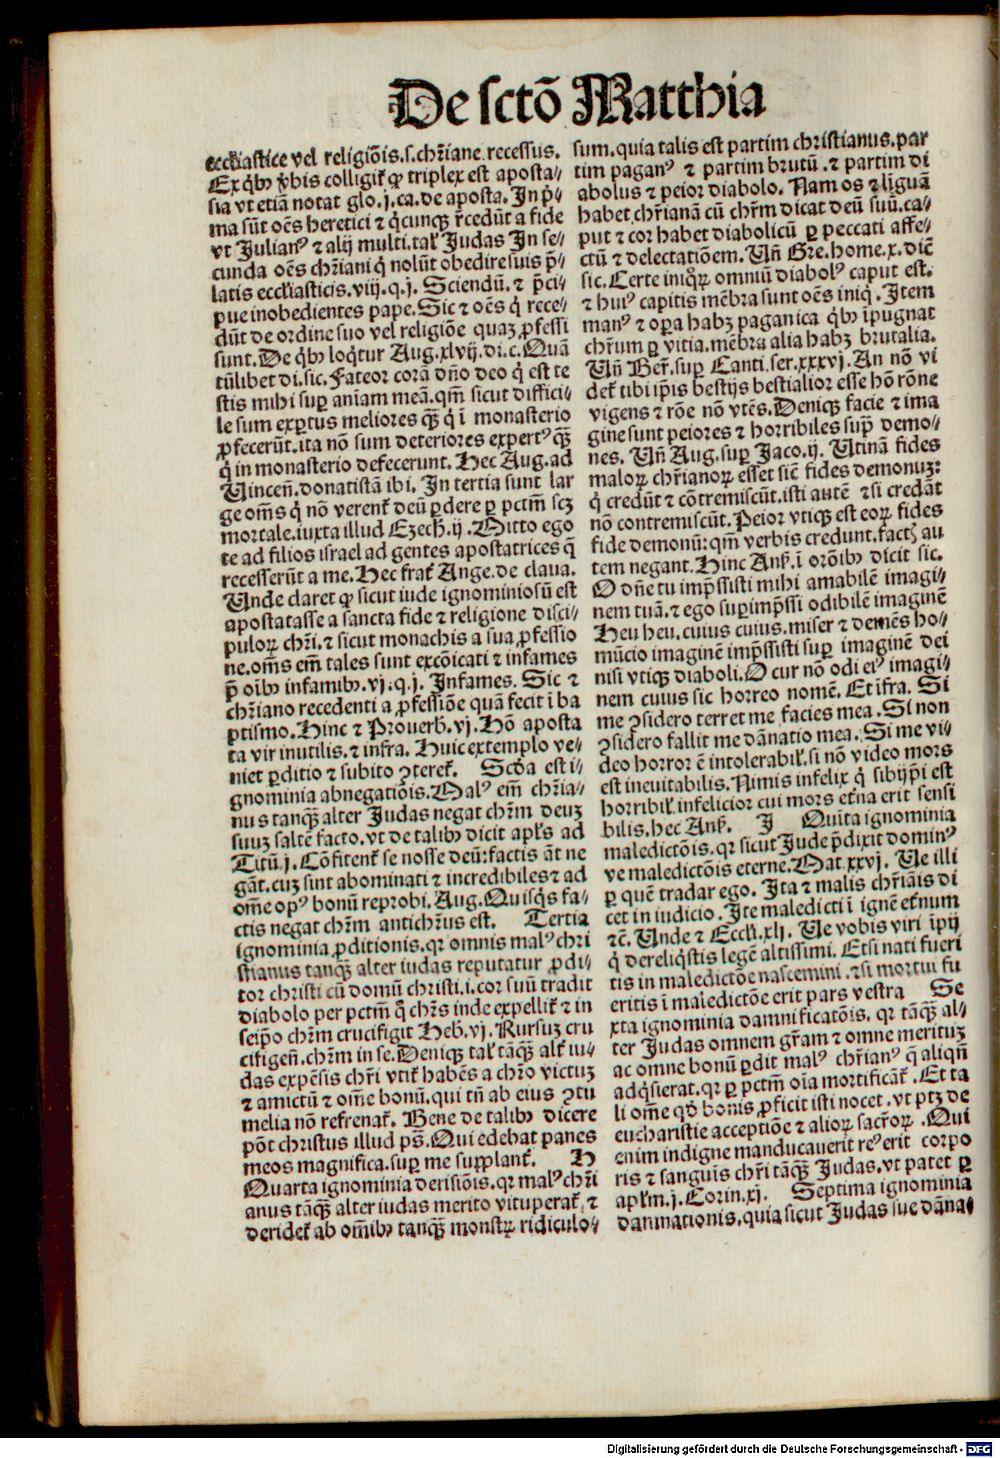 De sctō Matthia
ecclīastice vel religiōis.s.chr̄iane recessus.
Ex qͥbꝫ v̓bis colligit᷑ ꝙ triplex est aposta⸗
sia vt etiā notat glo.j.ca.de aposta. In pͥ⸗
ma sūt oēs heretici ⁊ qͥcunqꝫ r̄cedūt a fide
vt Julianꝰ ⁊ alij multi.tal᷑ Judas In se⸗
cunda oēs chr̄iani qͥ nolūt obedire suis p̄⸗
latis eccl̄iasticis.viij.q.j. Sciendū.⁊ p̄ci⸗
pue inobedientes pape. Sic ⁊ oēs qͥ rece⸗
dūt de ordine suo vel religiōe quaꝫ ꝓfessi
sunt. De qͥbꝫ loqͥtur Aug.xlvij.di.c. Quā
tūlibet di.sic. Fateor corā dn̄o deo qͥ est te
stis mihi suꝑ an̄iam meā.qm̄ sicut diffici⸗
le sum exꝑtus meliores qꝫ̄ qͥ ī monasterio
ꝓfecerūt.ita nō sum deteriores expertꝰ qꝫ̄
qͥ in monasterio defecerunt. Hec Aug.ad
Vincen̄.donatistā ibi. In tertia sunt lar
ge om̄s qͥ nō verent᷑ deū ꝑdere ꝑ pctm̄ scꝫ
mortale.iuxta illud Ezech.ij. Mitto ego
te ad filios israel ad gentes apostatrices q̄
recesserūt a me. Hec frat᷑ Ange.de claua.
Unde claret ꝙ sicut iude ignominiosū est
apostatasse a sancta fide ⁊ religione disci⸗
puloꝝ chr̄i.⁊ sicut monachis a sua ꝓfessio
ne.om̄s em̄ tales sunt excōicati ⁊ infames
p̄ oībꝫ infamibꝫ.vj.q.j. Infames. Sic ⁊
chr̄iano recedenti a ꝓfessiōe quā fecit ī ba
ptismo. Hinc ⁊ Prouerb.vj. Hō aposta
ta vir inutilis.⁊ infra. Huic extemplo ve⸗
niet ꝑditio ⁊ subito ꝯteret᷑. Scd̄a est i⸗
gnominia abnegatiōis. Malꝰ em̄ chr̄ia⸗
nus tanqꝫ̄ alter Judas negat chr̄m deuꝫ
suuꝫ saltē facto.vt de talibꝫ dicit apl̄s ad
Titū.j. Cōfitent᷑ se nosse deū:factis āt ne
gāt.cuꝫ sint abominati ⁊ incredibiles ⁊ ad
om̄e opꝰ bonū reprobi. Aug. Quisqͥs fa⸗
ctis negat chr̄m antichr̄us est. Tertia
ignominia ꝓditionis.qr omnis malꝰ chri
stianus tanqꝫ̄ alter iudas reputatur ꝓdi⸗
tor christi cū domū christi.i.cor suū tradit
diabolo per pctm̄ qͥ chr̄s inde expellit᷑ ⁊ in
seip̄o chr̄m crucifigit Heb.vj. Rursuꝫ cru
cifigen̄.chr̄m in se. Deniqꝫ tal᷑ tāqꝫ̄ alt᷑ iu⸗
das expēsis chr̄i vtit᷑ habēs a chr̄o victuꝫ
⁊ amictū ⁊ om̄e bonū.qui tn̄ ab eius ꝯtu
melia nō refrenat᷑. Bene de talibꝫ dicere
pōt christus illud ps̄. Qui edebat panes
meos magnifica.suꝑ me supplant᷑. H
Quarta ignominia derisiōis.qr malꝰ chr̄i
anus tāqꝫ̄ alter iudas merito vituperat᷑ ⁊
deridet᷑ ab om̄ibꝫ tanqꝫ̄ monstꝝ ridiculo⸗
sum.quia talis est partim christianus.par
tim paganꝰ ⁊ partim brutū.⁊ partim di
abolus ⁊ peior diabolo. Nam os ⁊ liguā
habet chr̄ianā cū chr̄m dicat deū suū.ca⸗
put ⁊ cor habet diabolicū ꝑ peccati affe⸗
ctū ⁊ delectatiōem. Vn̄ Gre.home.x.diē
sic. Certe iniqͦꝝ omniū diabolꝰ caput est.
⁊ huiꝰ capitis mēbra sunt oēs iniqͥ. Item
manꝰ ⁊ oꝑa habꝫ paganica qͥbꝫ īpugnat
chr̄um ꝑ vitia.mēbra alia habꝫ brutalia.
Vn̄ Ber̄.suꝑ Canti.ser.xxxvj. An nō vi
det᷑ tibi ip̄is bestijs bestialior esse hō rōne
vigens ⁊ rōe nō vtēs. Deniqꝫ facie ⁊ ima
gine sunt peiores ⁊ horribiles supͣ demo⸗
nes. Vn̄ Aug.suꝑ Jaco.ij. Vtinā fides
maloꝝ chr̄ianoꝝ esset sic̄ fides demonuꝫ:
qͥ credūt ⁊ cōtremiscūt.isti autē ⁊si credāt
nō contremiscūt. Peior vtiqꝫ est eoꝝ fides
fide demonū:qm̄ verbis credunt.factꝭ au
tem negant. Hinc Anẜ.ī orōibꝫ dicit sic.
O dn̄e tu imp̄ssisti mihi amabilē imagi⸗
nem tuā.⁊ ego suꝑimp̄ssi odibilē imaginē
Heu heu.cuius cuius.miser ⁊ demēs ho⸗
mūcio imaginē imp̄ssisti suꝑ imaginē dei
nisi vtiqꝫ diaboli. O cur nō odi eiꝰ imagi⸗
nem cuius sic horreo nomē. Et īfra. Si
me ꝯsidero terret me facies mea. Si non
ꝯsidero fallit me dānatio mea. Si me vi⸗
deo horror ē intolerabil᷑.si nō video mors
est ineuitabilis. Nimis infelix qͥ sibijp̄i est
horribil᷑.infelicior cui mors et̓na erit sensi
bilis.hec Anẜ. J Quīta ignominia
maledictōis.qr sicut Jude p̄dixit dominꝰ
ve maledictōis eterne. Mat.xxvj. Ve illi
ꝑ quē tradar ego. Ita ⁊ malis chr̄iāis di
cet in iudicio. Ite maledicti ī ignē et̓num
⁊c̄. Unde ⁊ Eccl̄i.xlj. Ve vobis viri īpij
qͥ dereliqͥstis legē altissimi. Etsi nati fueri
tis in maledictōe nascemini.⁊si mortui fu
eritis ī maledictōe erit pars vestra Se
xta ignominia damnificatōis. qr tāqꝫ̄ al⸗
ter Judas omnem gr̄am ⁊ omne merituꝫ
ac omne bonū ꝑdit malꝰ chr̄ianꝰ q̄ aliqn̄
adqͥsierat.qr ꝑ pctm̄ oīa mortificāt᷑. Et ta
li om̄e qd̄ bonis ꝓficit isti nocet.vt ptꝫ de
eucharistie acceptiōe ⁊ alioꝝ sacr̄oꝝ. Qui
enim indigne manducauerit reꝰ erit corpo
ris ⁊ sanguis chr̄i tāqꝫ̄ Judas.vt patet ꝑ
apl̄m.j.Corin.xj. Septima ignominia
damnationis.quia sicut Judas sue dāna⸗
Digitalisierung gefördert durch die Deutsche Forschungsgemeinschaft - DFG